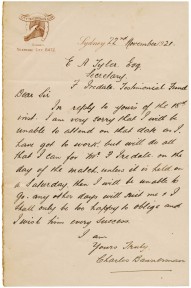 Sydney 22nd November 1921.
E A Tyler Esq
Secretary
F Iredale Testimonial Fund
Dear Sir
In reply to yours of the 18th
inst. I am very sorry that I will be
unable to attend on that date as I
have got to work, but will do all
that I can for Mr F Iredale on the
day of the match, unless it is held on
a Saturday, then I will be unable to
Go. any other days will suit me & I
shall only be too happy to oblige and
I wish him every success.
I am
Yours Truly
Charles Bannerman